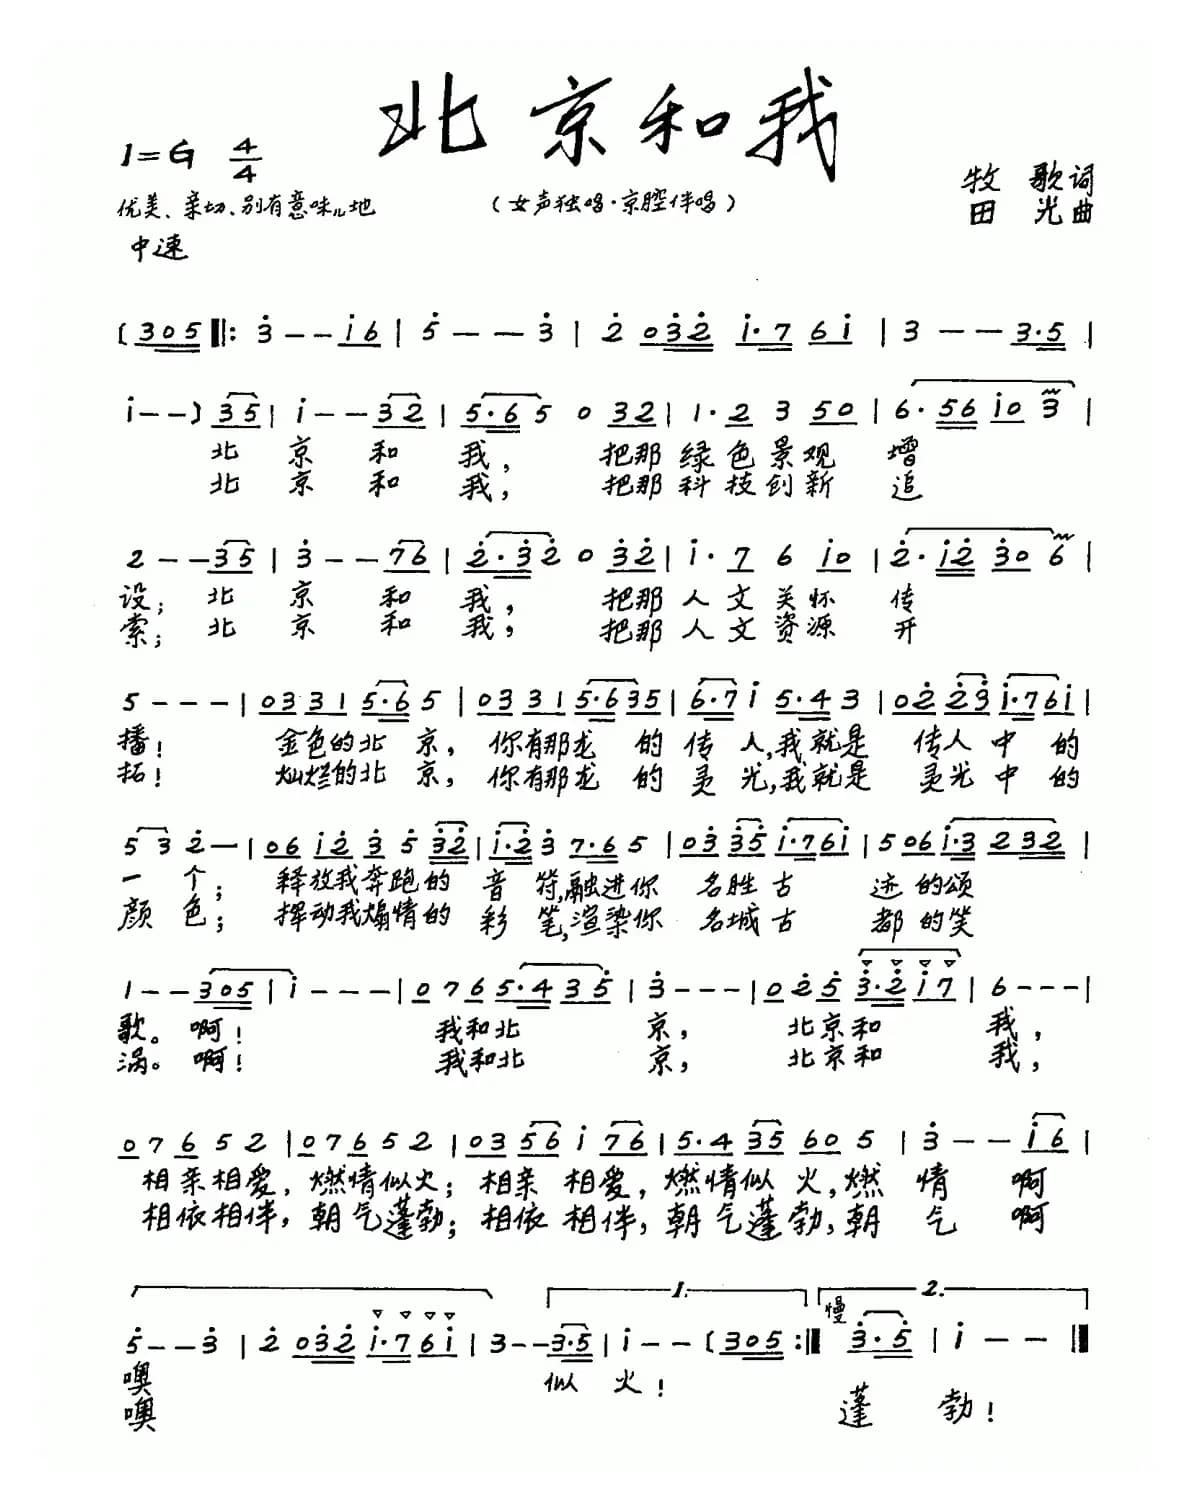 北京和我
1=G 4/4
优美、亲切、别有意味儿地
中速
（女声独唱·京腔伴唱）
牧 歌 词
田 光 曲
(305 ‖: 3 - - i6 | 5 - - 3 | 2 032 i·7 6i | 3 - - 3·5 |
i - - ) 35 | i - - 32 | 5·65 0 32 | 1·2 3 50 | 6·56 i0 3 |
北 京 和 我， 把那绿色景观 增
北 京 和 我， 把那科技创新 追
2 - - 35 | 3 - - 76 | 2·32 0 32 | i·7 6 i0 | 2·i2 30 6 |
设； 北 京 和 我， 把那人文关怀 传
索； 北 京 和 我， 把那人文资源 开
5 - - - | 0331 5·6 5 | 0331 5·635 | 6·7 i 5·4 3 | 02 23 i·76i |
播！ 金色的北 京， 你有那龙 的 传 人，我就是 传人 中 的
拓！ 灿烂的北 京， 你有那龙 的 灵 光，我就是 灵光 中 的
53 2 - | 06 i2 3 5 32 | i·2 3 7·6 5 | 03 35 i·76i | 5 06 i·3 2 32 |
一 个； 释放我奔跑的 音 符，融进你 名胜古 迹 的颂
颜 色； 挥动我煽情的 彩 笔，渲染你 名城古 都 的笑
1 - - 305 | i - - - | 0 7 6 5·4 35 | 3 - - - | 0 2 5 3·2 i7 | 6 - - - |
歌。 啊！ 我和北 京， 北京和 我，
涡。 啊！ 我和北 京， 北京和 我，
0 7 6 5 2 | 0 7 6 5 2 | 03 56 i 76 | 5·4 35 60 5 | 3 - - i6 |
相亲相爱，燃情似火；相亲 相爱，燃情似 火，燃 情 啊
相依相伴，朝气蓬勃；相依 相伴，朝气蓬 勃，朝 气 啊
5 - - 3 | 2 032 i·7 6i | 3 - - 3·5 | i - - (305 :‖ 3·5 | i - - ‖
1.
2.
慢
噢 似 火！
噢 蓬 勃！